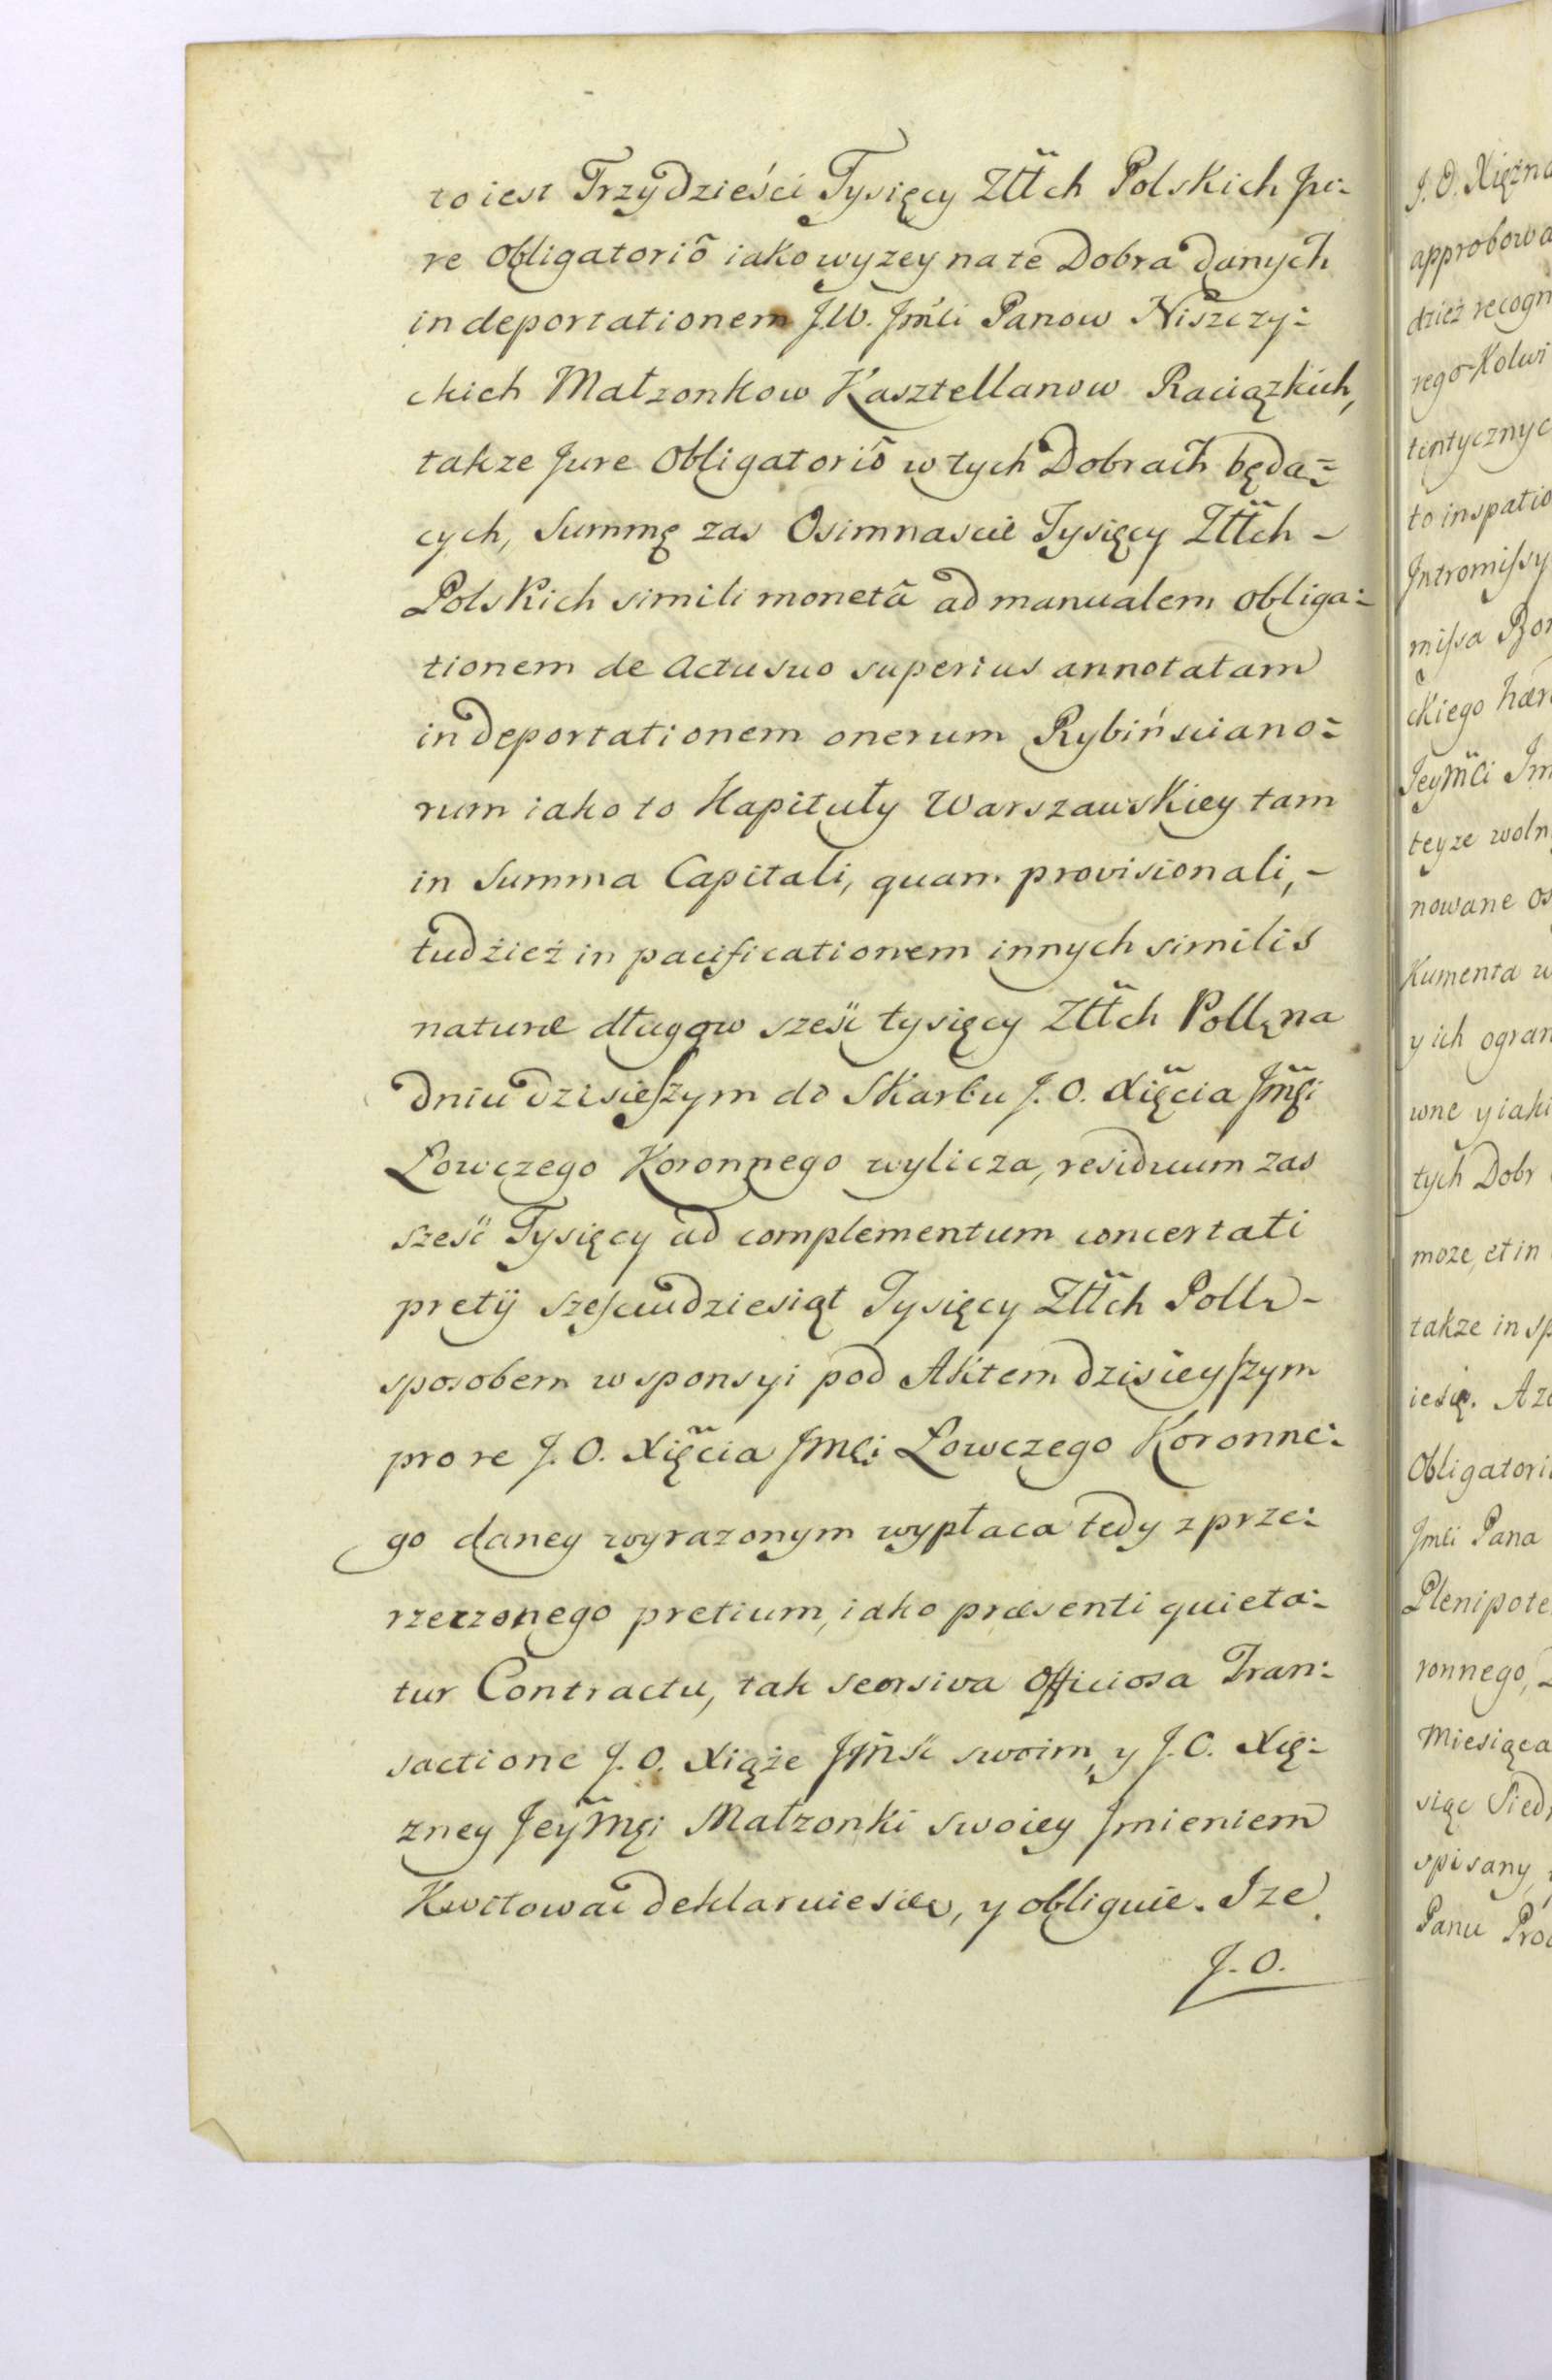 to iest Trzydzieści Tysięcy Zł̃t̃ch Polskich Ju:
re Obligatoriõ iako wyzey na te Dobra danych
in deportationem J.W. Jm̃ci Panow Niszczy:
ckich Małzonkow Kasztellanow Raciązkich,
takze Jure Obligatoriõ w tych Dobrach będa:
cych, Summę zas Osimnascie Tysięcy Zł̃t̃ch -
Polskich simili monetâ ad manualem obliga:
tionem de Actu suo superius annotatam
in deportationem onerum Rybińsciano:
rum iako to Kapituły Warszawskiey tam
in Summa Capitali, quam provisionali, -
tudżież in pacificationem innych similis
naturæ długow sześć tysięcy Zł̃t̃ch Poll: na
dniu dzisieszym do Skarbu J. O. Xięcia Jm̃ci
Łowczego Koronnego wylicza, residuum zas
sześć Tysięcy ad complementum concertati
pretij szescudziesiąt Tysięcy Zł̃t̃ch Poll: -
sposobem w sponsyi pod Aktem dzisieyszym
pro re J. O. Xięcia Jm̃ci Łowczego Koronne:
go daney wyrazonym wypłaca tedy z prze:
rzeczonego pretium, iako præsenti quieta:
tur Contractu, tak seorsiva Officiosa Tran:
sactione J. O. Xiąże Jm̃ść swoim, y J. O. Xię:
zney Jeym̃ci Małzonki swoiey Jmieniem
Kwitować deklaruie się, y obliguie. Jze
J. O.
J. O. Xiężna
approbowa
dzież recogn
rego-Kolwi
tentycznyc
to in spatio
Jntromissy
missa Bon
ckiego hær
Jeym̃ci Jm
teyze woln
nowane os
Kumenta w
y ich ogran
wne y iaki
tych Dobr
moze, et in
takze in sp
iesię. Aze
Obligatori
Jmci Pana
Plenipote
ronnego,
Miesiąca
siąc Sied
spisany
Panu Pro